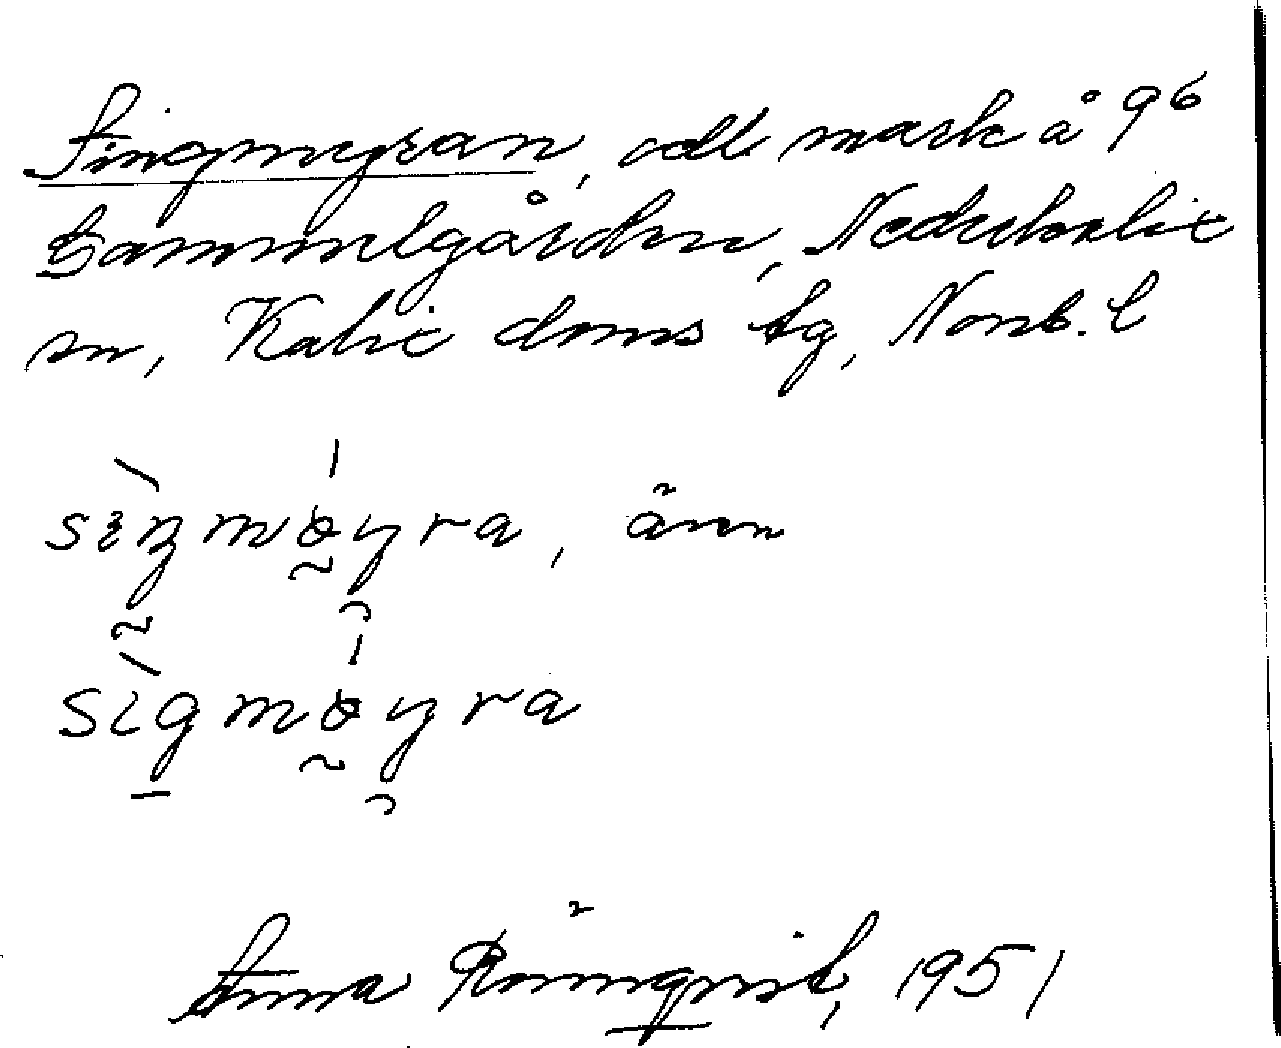 Singmyran, odl mark å 96
Gammelgården, Nederkalix
sn, Kalix doms tg, Norrb. l
sìŋmǿyra, även
sìgmǿyra
Anna Rönnqvist, 1951